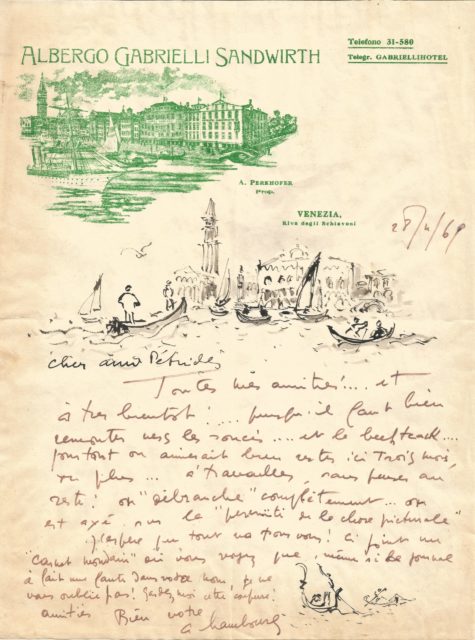 ALBERGO GABRIELLI SANDWIRTH
Telefono 31-580
Telegr. GABRIELLIHOTEL
A. PERKHOFER
Prop.
VENEZIA,
Riva degli Schiavoni
28/ /69
cher ami Pétridès
Toutes mes amitiés!... et
à très bientôt! .... puisqu'il faut bien
remonter vers les soucis... et le beefteack....
pourtant on aimerait bien rester ici trois mois
ou plus... à travailler, sans penser au
reste! on "débranche" complètement... on
est axé sur la "pérennité de la chose picturale"
J'espère que tout va pour vous! Ci joint un
"carnet mondain" où vous voyez que, même si le journal
a fait une faute dans votre nom,
vous oublie pas! Gardez moi cette coupure!
amitiés Bien votre
Chambourg